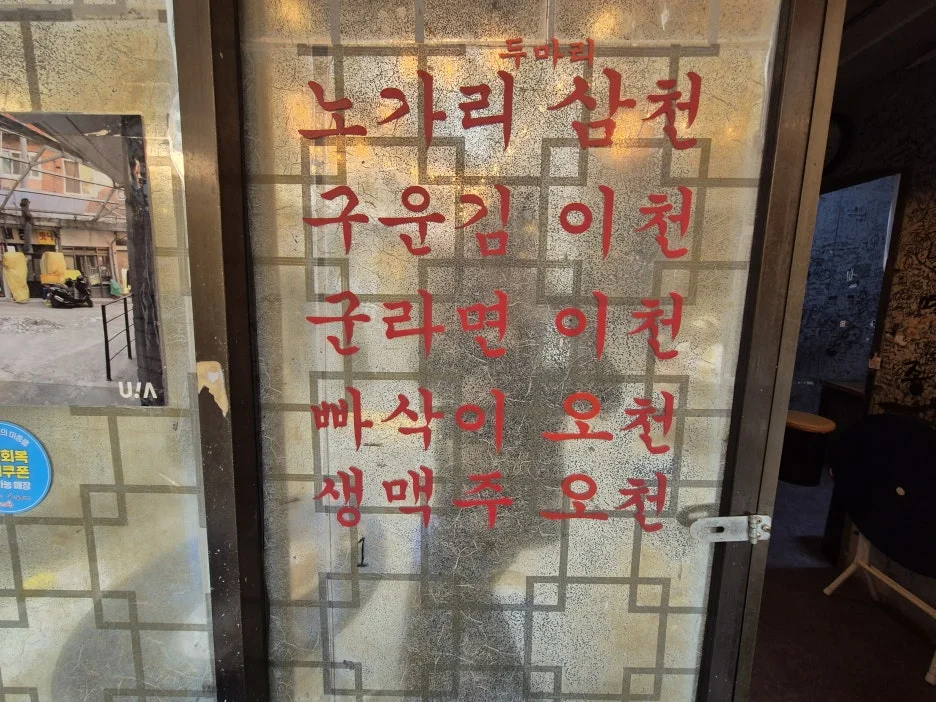 두마리
노가리 삼천
구운김 이천
군라면 이천
빠삭이 오천
생맥주 오천
1
회복
쿠폰